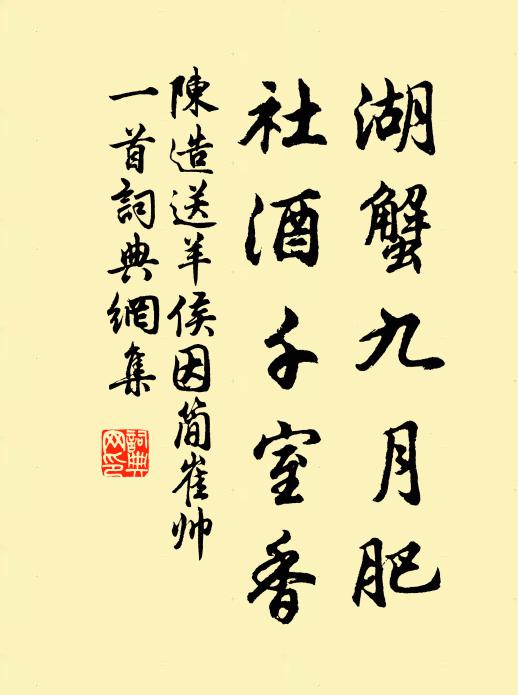 湖蟹九月肥
社酒千室香
陳造送羊侯因簡崔帅
一首詞典網集
詞典
网印